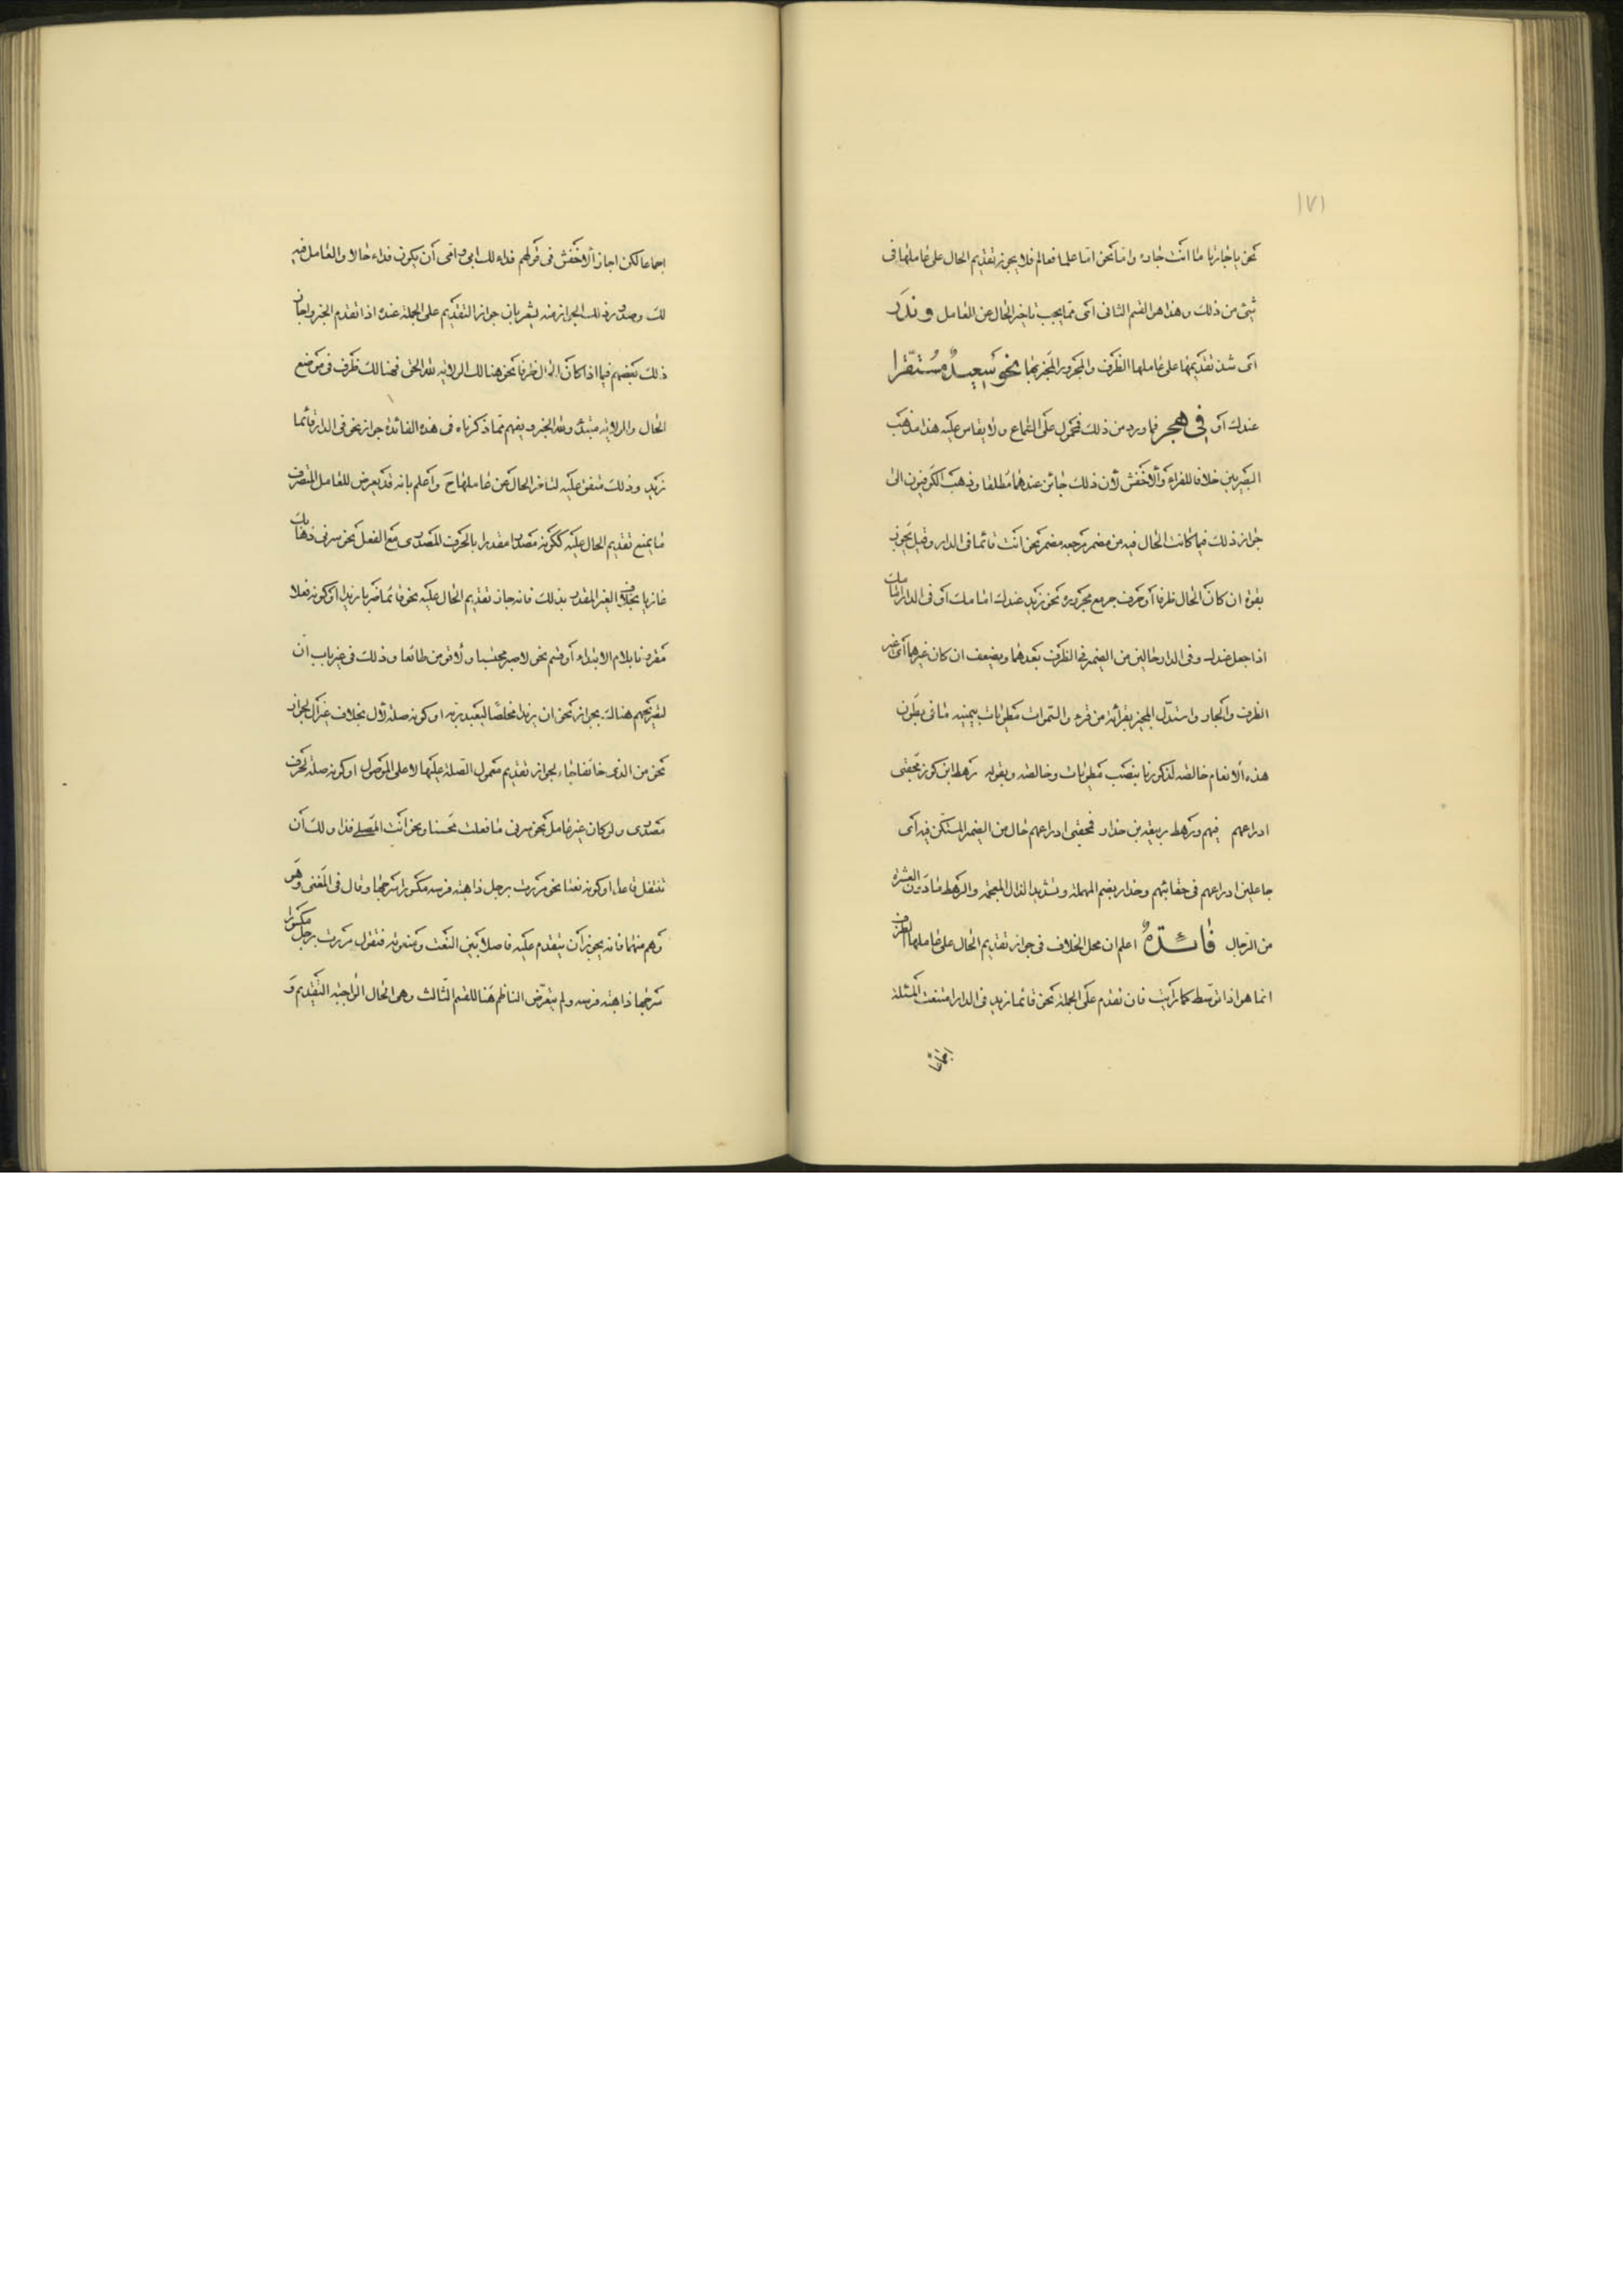 ١٧١
نحو يا جارتا ما انت جاره واما نحو اما علما فعالم فلا يجوز تقديم الحال على عاملها فى
شئ من ذلك وهذا هو القسم الثانى اى مما يجب تاخير الحال عن العامل وندر
اى شذ تقديمها على عاملها الظرف والمجرور المخبر بهما نحو سعيد مستقرا
عندك او فى هجر فما ورد من ذلك فمحمول على السماع ولا يقاس عليه هذا مذهب
البصريين خلافا للفراء والاخفش لان ذلك جائز عندهما مطلقا وذهب الكوفيون الى
جواز ذلك فيما كانت الحال فيه من مضمر مرجعه مضمر نحو انت قائما فى الدار وقيل يجوز
بقوة ان كان الحال ظرفا او حرف جر مع مجروره نحو زيد عندك امامك او فى الدار امامك
اذا جعل عندك وفى الدار حالين من الضمير فى الظرف بعدهما ويضعف ان كان غيرهما اى غير
الظرف والجار واستدل المجيز بقراءة من قرء والسموات مطويات بيمينه ما فى بطون
هذه الانعام خالصة لذكورنا بنصب مطويات وخالصة وبقوله رهط ابن كوز محقبى
ادراعهم فيهم ورهط ربيعة بن حذار فمحقبى ادراعهم حال من الضمير المستكن فيه اى
جاعلين ادراعهم فى حقائبهم وحذار بضم المهملة وتشديد الذال المعجمة والرهط ما دون العشرة
من الرجال فائدة اعلم ان محل الخلاف فى جواز تقديم الحال على عاملها الظرف
انما هو اذا توسط كما رايت فان تقدم على الجملة نحو قائما زيد فى الدار امتنعت المسئلة
اجماعا
اجماعا لكن اجاز الاخفش فى قولهم فداء لك ابى وامى ان يكون فداء حالا والعامل فيه
لك وصدور ذلك الجواز منه يشعر بان جواز التقديم على الجملة عنده اذا تقدم الخبر واجاز
ذلك بعضهم فيما اذا كان الحال ظرفا نحو هنالك الولاية لله الحق فهنالك ظرف فى موضع
الحال والولاية مبتدء ولله الخبر ويفهم مما ذكرناه فى هذه الفائدة جواز نحو فى الدار قائما
زيد وذلك متفق عليه لتاخر الحال عن عاملها ح واعلم بانه قد يعرض للعامل المتصرف
ما يمنع تقديم الحال عليه ككونه مصدرا مقدرا بالحرف المصدرى مع الفعل نحو سرنى ذهابك
غازيا بخلاف الغير المقدر بذلك فانه جاز تقديم الحال عليه نحو قائما ضربا زيدا او كونه فعلا
مقرونا بلام الابتداء او قسم نحو لاصبر محتسبا ولاقومن طائعا وذلك فى غير باب ان
لتصريحهم هنالك بجواز نحو ان زيدا مخلصا ليعبد ربه او كونه صلة لال بخلاف غير ال لجواز
نحو من الذى خائفا جاء لجواز تقديم معمول الصلة عليها لا على الموصول او كونه صلة لحرف
مصدرى ولو كان غير عامل نحو سرنى ما فعلت محسنا ونحو انت المصلى فذا ولك ان
تنتقل قاعدا او كونه نعتا نحو مررت برجل ذاهبة فرسه مكسورا سرجها وقال فى المغنى وهو
وهم منهما فانه يجوز ان يتقدم عليه فاصلا بين النعت ومنعوته فتقول مررت برجل مكسورا
سرجها ذاهبة فرسه ولم يتعرض الناظم هنا للقسم الثالث وهو الحال الواجبة التقديم و